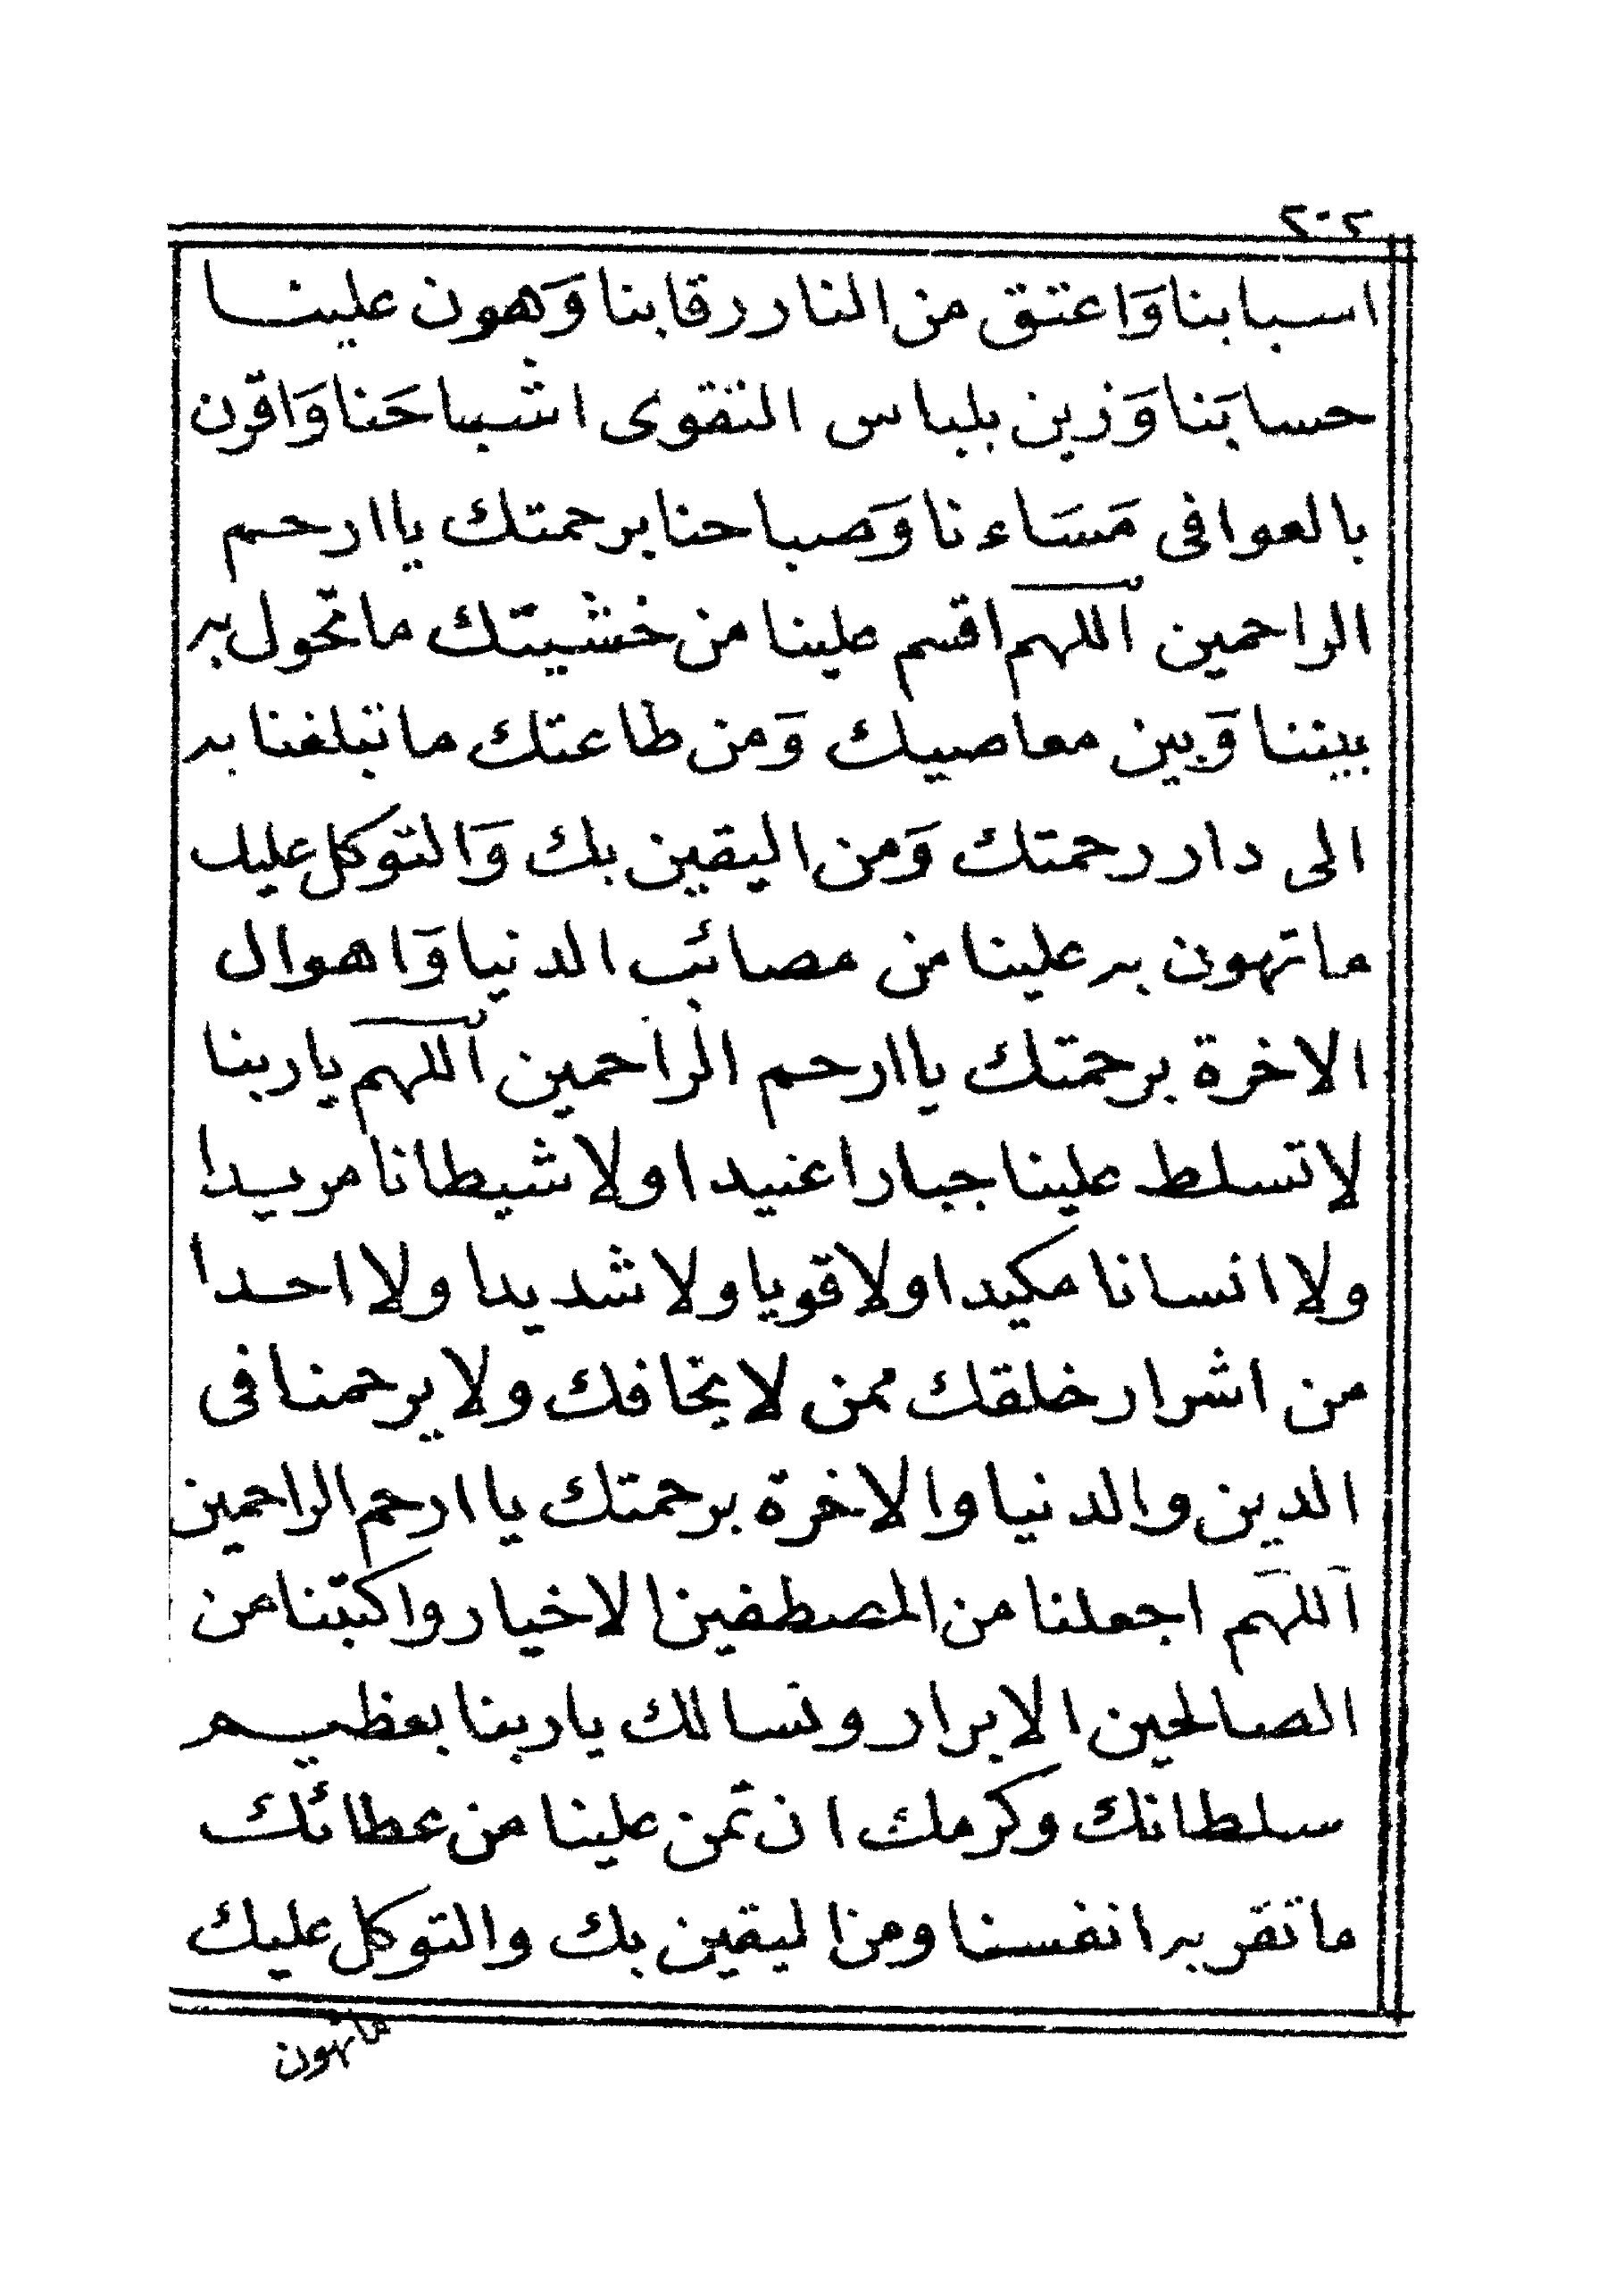 ٢٠٢
اسبابنا وَاعتق من النار رقابنا وَهون علينا
حسابَنا وَزين بلباس التقوى اشباحَنا وَاقرن
بالعوافى مَسَاءنا وَصباحنا برحمتك ياارحم
الراحمين اللهم اقسم علينا من خشيتك ماتحول به
بيننا وَبين معاصيك وَمن طاعتك ماتبلغنا به
الى دار رحمتك وَمن اليقين بك وَالتوكل عليك
ماتهون به علينا من مصائب الدنيا وَاهوال
الاخرة برحمتك ياارحم الراحمين اللهم ياربنا
لاتسلط علينا جبارا عنيدا ولا شيطانا مريدا
ولا انسانا مكيدا ولا قويا ولا شديدا ولا احدا
من اشرار خلقك ممن لا يخافك ولا يرحمنا فى
الدين والدنيا والاخرة برحمتك يا ارحم الراحمين
اللهم اجعلنا من المصطفين الاخيار واكتبنا من
الصالحين الابرار ونسالك ياربنا بعظيم
سلطانك وكرمك ان تمن علينا من عطائك
ماتقر به انفسنا ومن اليقين بك والتوكل عليك
ماتهون